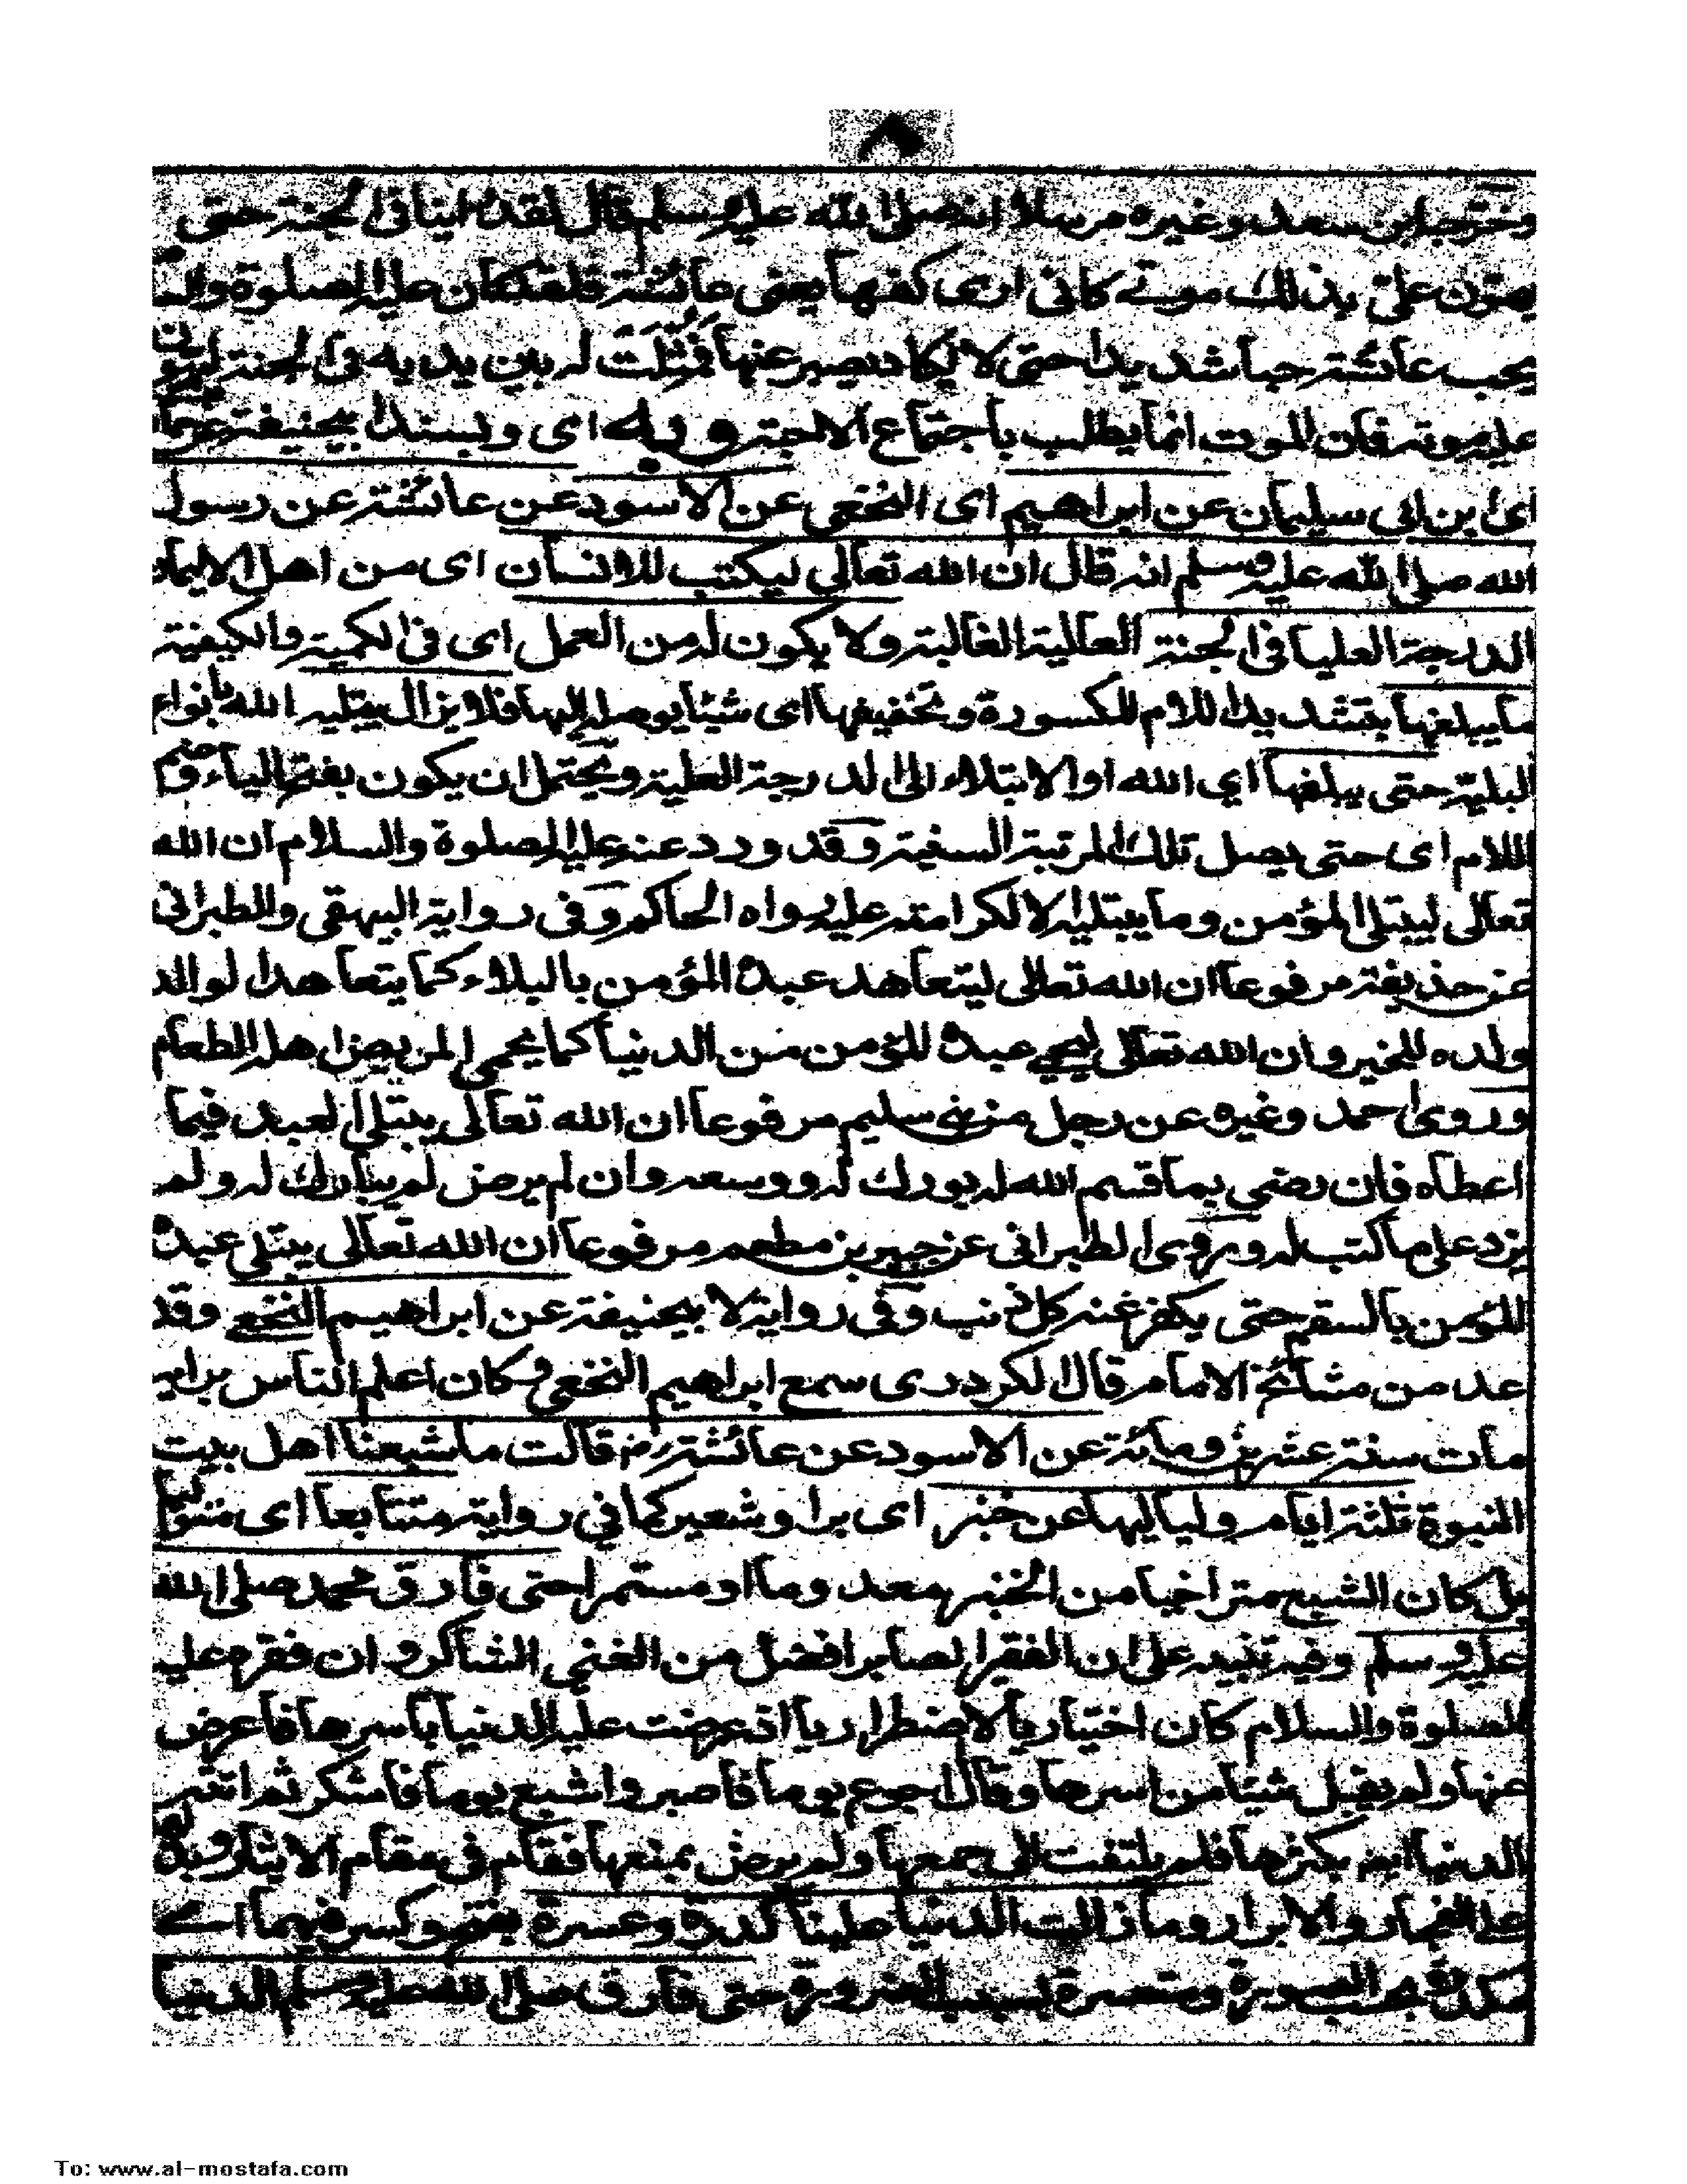 ٨
وخرج ابن سعد وغيره مرسلا انه صلى الله عليه وسلم قال لقد رايتها فى الجنة حتى
يهون على بذلك موتى كانى ارى كفيها يعنى عائشة فلقد كان عليه الصلوة والسلام
يحب عائشة حبا شديدا حتى لا يكاد يصبر عنها فمثلت له بين يديه فى الجنة ليهون
عليه موته فان الموت انما يطلب باجتماع الاحبة وبه اى وبسند ابيحنيفة عن حماد
اى ابن ابى سليمان عن ابراهيم اى النخعى عن الاسود عن عائشة عن رسول
الله صلى الله عليه وسلم انه قال ان الله تعالى ليكتب للانسان اى من اهل الايمان
الدرجة العليا فى الجنة العالية الغالبة ولا يكون له من العمل اى فى الكمية والكيفية
ما يبلغها بتشديد اللام المكسورة وتخفيفها اى شيئا يوصله اليها فلا يزال يبتليه الله بانواع
البلية حتى يبلغها اى الله او الابتلاء الى الدرجة العلية ويحتمل ان يكون بفتح الياء وضم
اللام اى حتى يصل تلك المرتبة السنية وقد ورد عنه عليه الصلوة والسلام ان الله
تعالى ليبتلى المؤمن وما يبتليه الا لكرامته عليه رواه الحاكم وفى رواية البيهقى والطبرانى
عن حذيفة مرفوعا ان الله تعالى ليتعاهد عبده المؤمن بالبلاء كما يتعاهد الوالد
ولده للخير وان الله تعالى ليحمى عبده المؤمن من الدنيا كما يحمى المريض اهله الطعام
وروى احمد وغيره عن رجل من بنى سليم مرفوعا ان الله تعالى يبتلى العبد فيما
اعطاه فان رضى بما قسم الله له بورك له ووسعه وان لم يرض لم يبارك له ولم
يزد على ما كتب له وروى الطبرانى عن جبير بن مطعم مرفوعا ان الله تعالى يبتلى عبده
المؤمن بالسقم حتى يكفر عنه كل ذنب وفى رواية لابيحنيفة عن ابراهيم النخعى وقد
عد من مشائخ الامام قال الكردرى سمع ابراهيم النخعى وكان اعلم الناس برايه
مات سنة عشرين ومائة عن الاسود عن عائشة رض قالت ما شبعنا اهل بيت
النبوة ثلثة ايام ولياليها عن خبز اى برا وشعير كما فى رواية متتابعا اى متواليا
بل كان الشبع متراخيا من الخبز معد وما او مستمرا حتى فارق محمد صلى الله
عليه وسلم وفيه تنبيه على ان الفقير الصابر افضل من الغنى الشاكر وان فقره عليه
الصلوة والسلام كان اختياريا لا اضطراريا اذ عرضت عليه الدنيا باسرها فاعرض
عنها ولم يقبل شيئا من اسرها وقال اجوع يوما فاصبر واشبع يوما فاشكر ثم اتته
الدنيا بكثرها فلم يلتفت الى جمعها ولم يرض بمنعها فقام فى مقام الايثار وبذلها
على الفجار والابرار وما زالت الدنيا علينا كدرة وعسرة بفتح وكسر فيهما اى
مكدرة بحسب الصورة ومتعسرة بسبب الضرورة حتى فارق صلى الله عليه وسلم الدنيا
To: www.al-mostafa.com